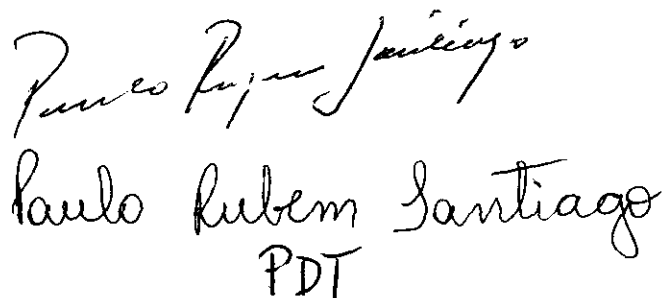 Paulo Rubem Santiago
Paulo Rubem Santiago
PDT